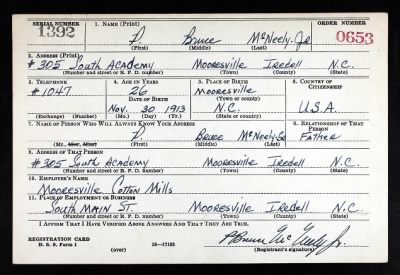 SERIAL NUMBER 1. NAME (Print) ORDER NUMBER
1392 P Bruce McNeely Jr 0653
(First) (Middle) (Last)
2. ADDRESS (Print)
#305 South Academy Mooresville Iredell N.C.
(Number and street or R. F. D. number) (Town) (County) (State)
3. TELEPHONE 4. AGE IN YEARS 5. PLACE OF BIRTH 6. COUNTRY OF CITIZENSHIP
#1047 26 Mooresville
DATE OF BIRTH (Town or county)
Nov. 30 1913 N.C. U.S.A.
(Exchange) (Number) (Mo.) (Day) (Yr.) (State or country)
7. NAME OF PERSON WHO WILL ALWAYS KNOW YOUR ADDRESS 8. RELATIONSHIP OF THAT PERSON
P Bruce McNeely Sr Father
(Mr., Mrs., Miss) (First) (Middle) (Last)
9. ADDRESS OF THAT PERSON
#305 South Academy Mooresville Iredell N.C.
(Number and street or R. F. D. number) (Town) (County) (State)
10. EMPLOYER'S NAME
Mooresville Cotton Mills
11. PLACE OF EMPLOYMENT OR BUSINESS
South Main St. Mooresville Iredell N.C.
(Number and street or R. F. D. number) (Town) (County) (State)
I AFFIRM THAT I HAVE VERIFIED ABOVE ANSWERS AND THAT THEY ARE TRUE.
REGISTRATION CARD P Bruce McNeely Jr.
D. S. S. Form 1 (over) 16—17105 (Registrant's signature)